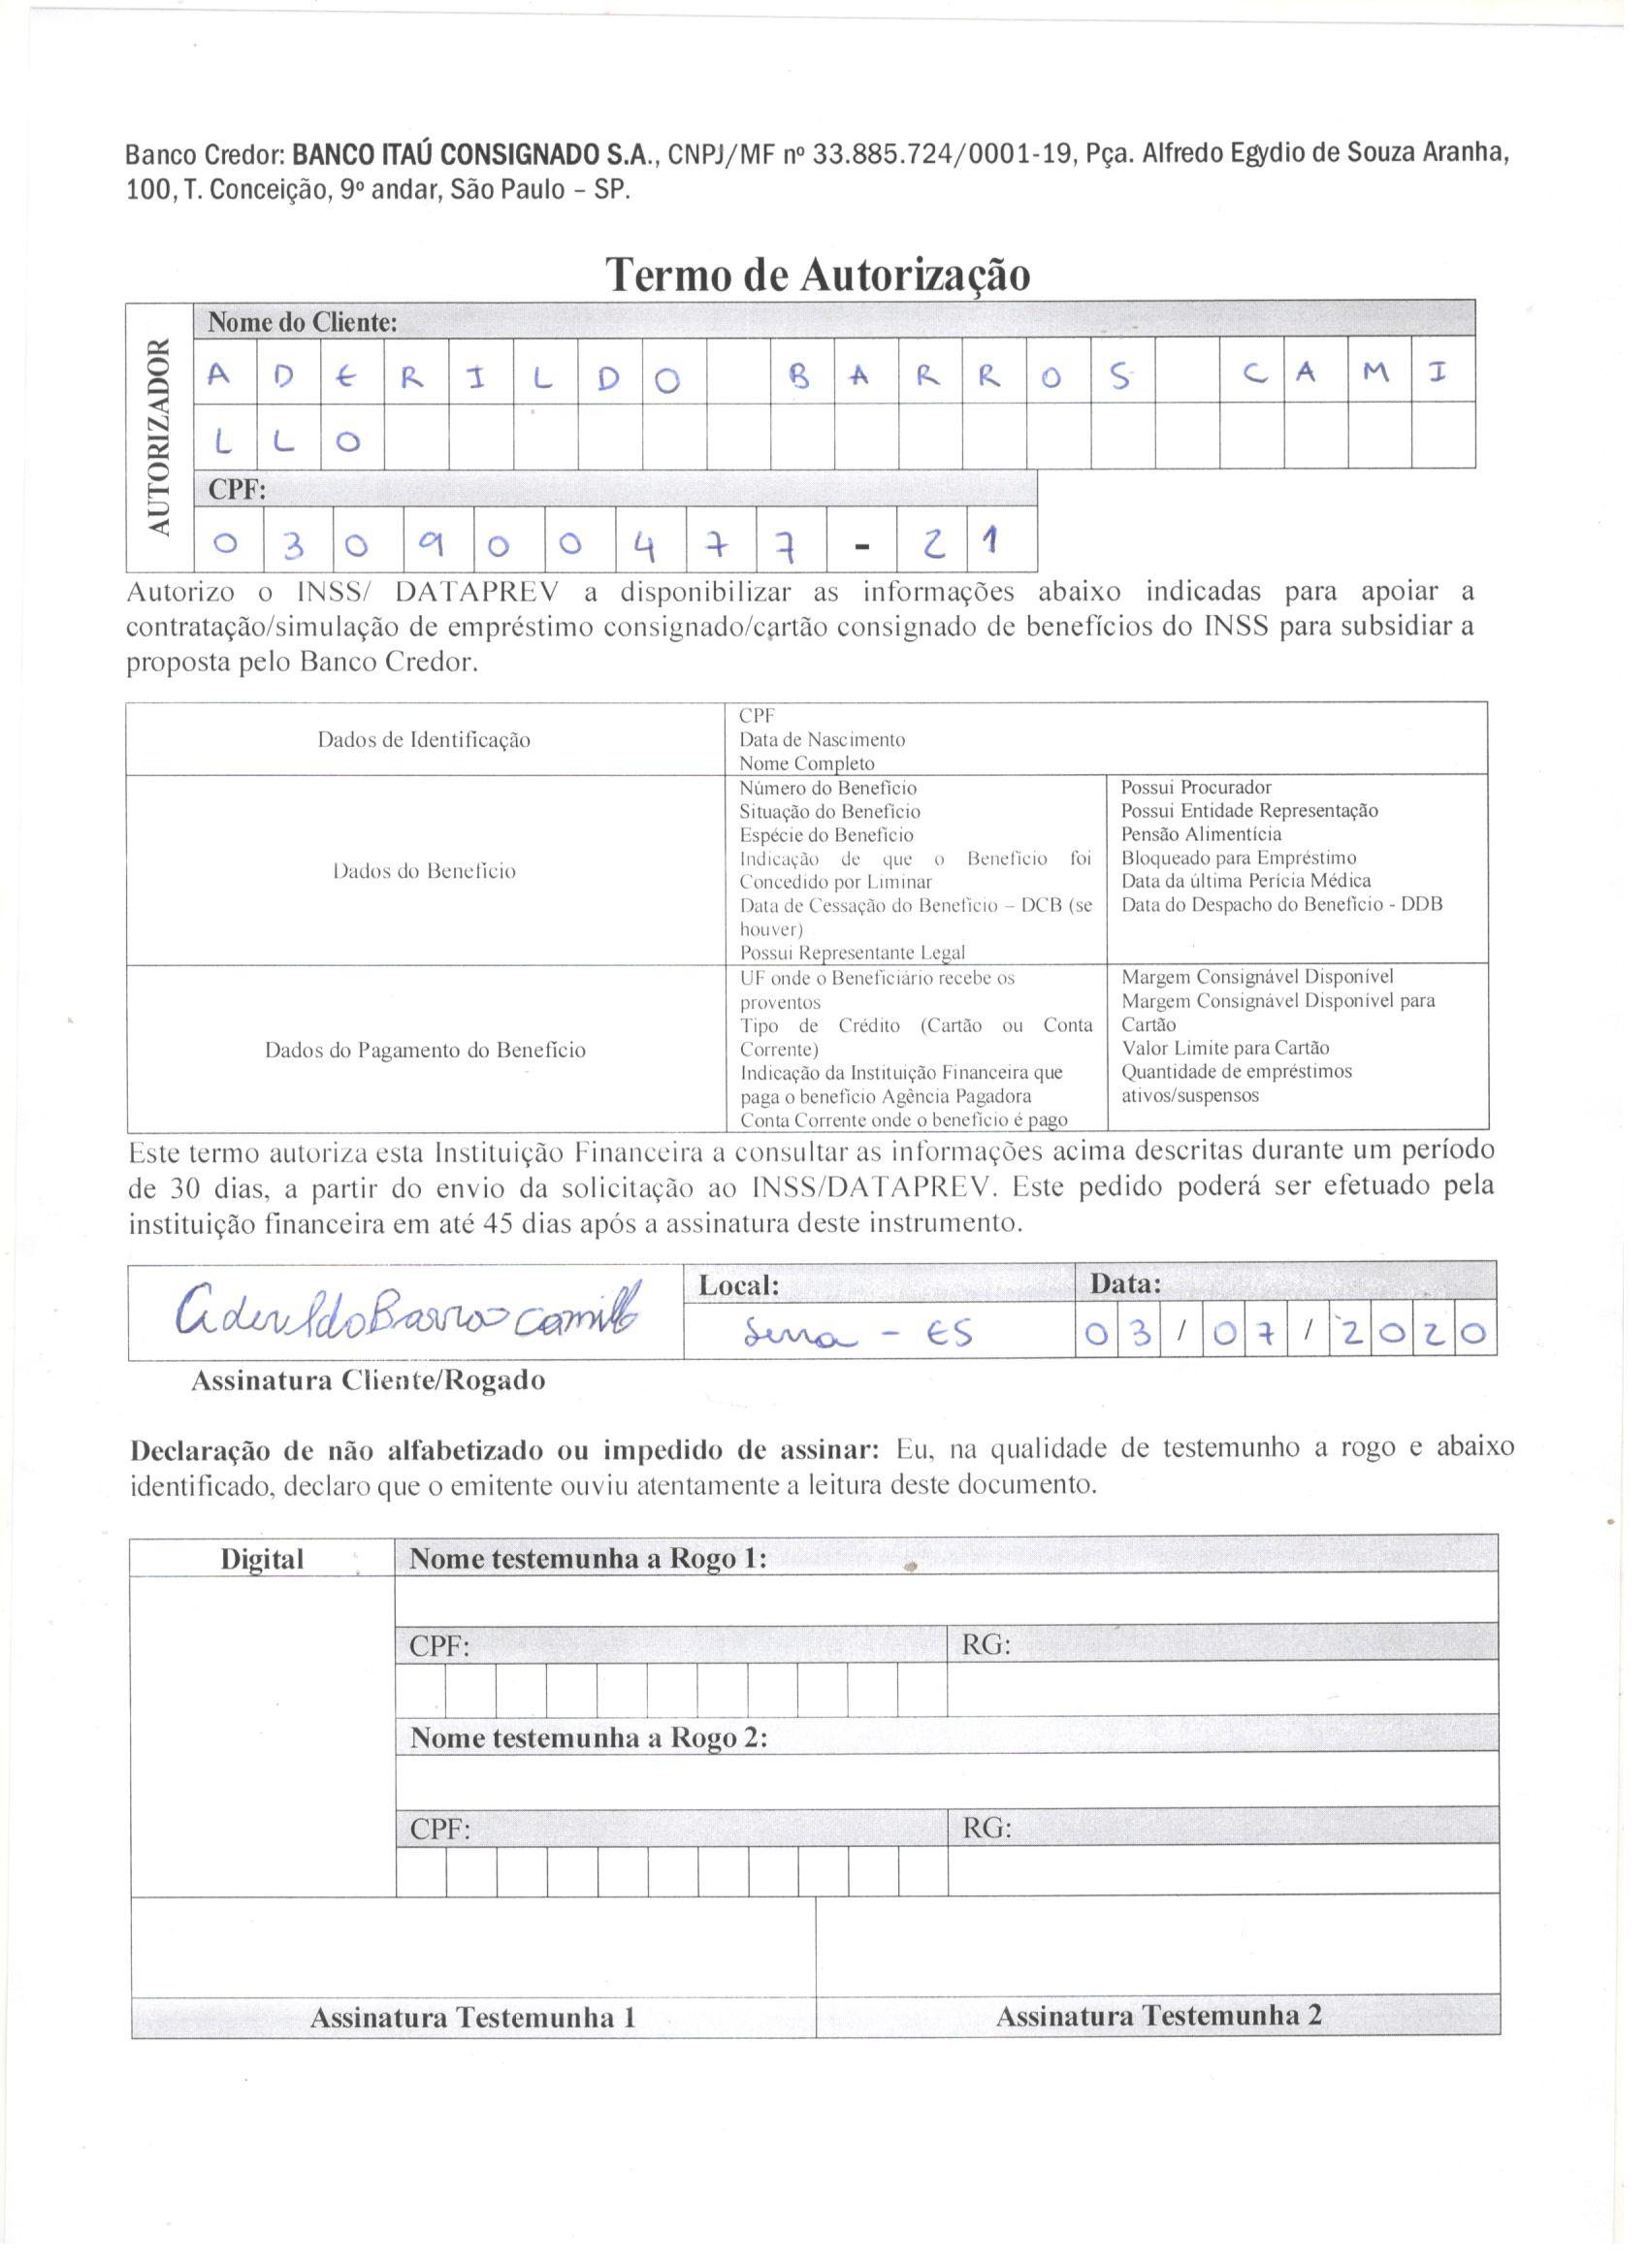 Banco Credor: BANCO ITAÚ CONSIGNADO S.A., CNPJ/MF nº 33.885.724/0001-19, Pça. Alfredo Egydio de Souza Aranha,
100, T. Conceição, 9º andar, São Paulo – SP.
Termo de Autorização
AUTORIZADOR
Nome do Cliente:
ADERILDO BARROS CAMI
LLO
CPF:
030900477-21
Autorizo o INSS/ DATAPREV a disponibilizar as informações abaixo indicadas para apoiar a
contratação/simulação de empréstimo consignado/cartão consignado de benefícios do INSS para subsidiar a
proposta pelo Banco Credor.
Dados de Identificação
CPF
Data de Nascimento
Nome Completo
Dados do Benefício
Número do Benefício
Situação do Benefício
Espécie do Benefício
Indicação de que o Benefício foi
Concedido por Liminar
Data de Cessação do Benefício – DCB (se
houver)
Possui Representante Legal
Possui Procurador
Possui Entidade Representação
Pensão Alimentícia
Bloqueado para Empréstimo
Data da última Perícia Médica
Data do Despacho do Benefício - DDB
Dados do Pagamento do Benefício
UF onde o Beneficiário recebe os
proventos
Tipo de Crédito (Cartão ou Conta
Corrente)
Indicação da Instituição Financeira que
paga o benefício Agência Pagadora
Conta Corrente onde o benefício é pago
Margem Consignável Disponível
Margem Consignável Disponível para
Cartão
Valor Limite para Cartão
Quantidade de empréstimos
ativos/suspensos
Este termo autoriza esta Instituição Financeira a consultar as informações acima descritas durante um período
de 30 dias, a partir do envio da solicitação ao INSS/DATAPREV. Este pedido poderá ser efetuado pela
instituição financeira em até 45 dias após a assinatura deste instrumento.
Aderildo Barros camillo
Local:
Serra - ES
Data:
03/07/2020
Assinatura Cliente/Rogado
Declaração de não alfabetizado ou impedido de assinar: Eu, na qualidade de testemunho a rogo e abaixo
identificado, declaro que o emitente ouviu atentamente a leitura deste documento.
Digital
Nome testemunha a Rogo 1:
CPF:
RG:
Nome testemunha a Rogo 2:
CPF:
RG:
Assinatura Testemunha 1
Assinatura Testemunha 2